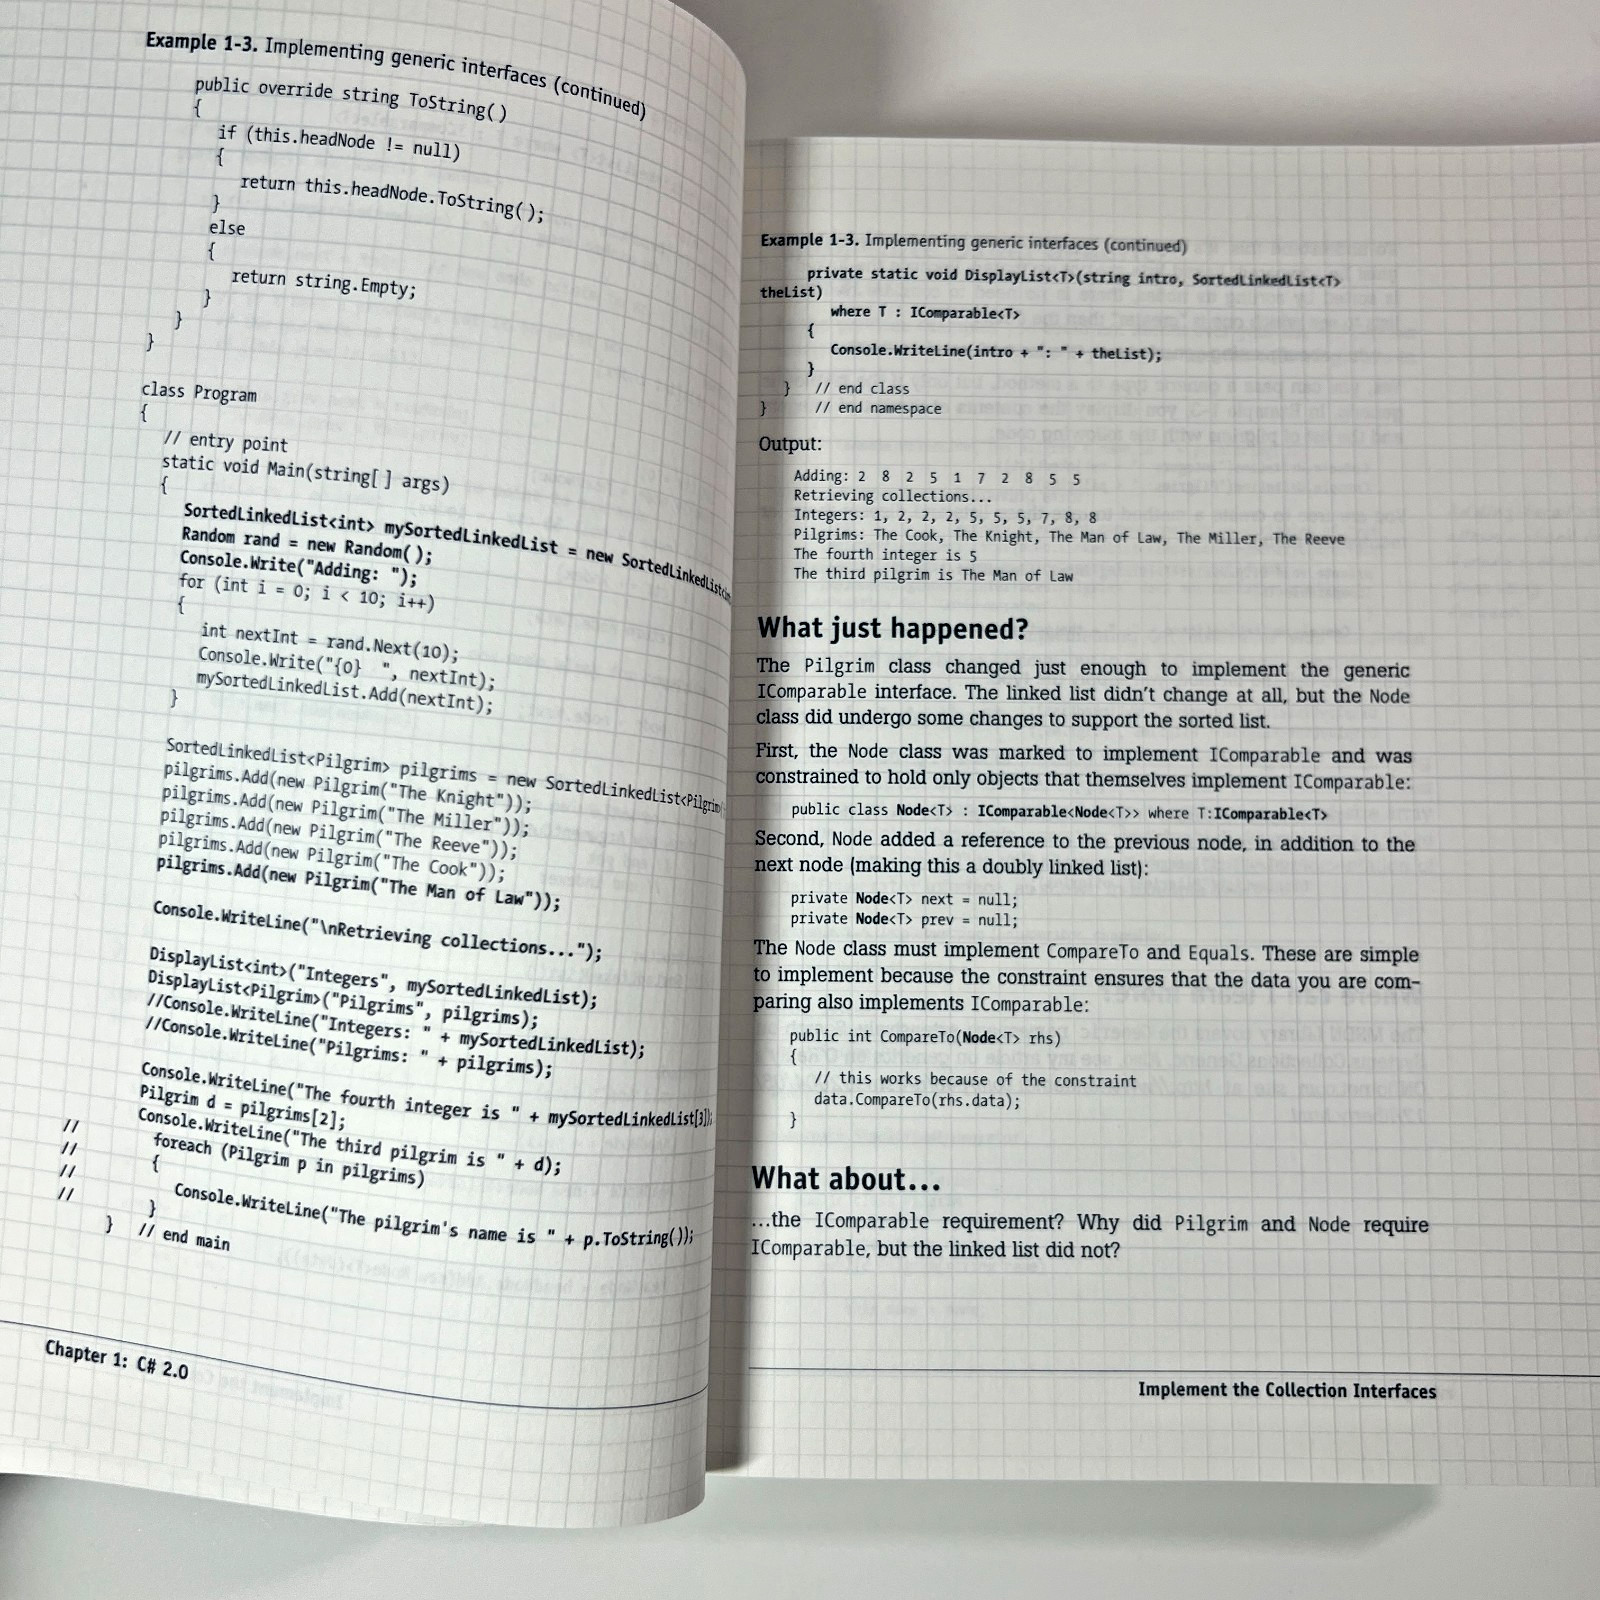 Example 1-3. Implementing generic interfaces (continued)
public override string ToString( )
{
if (this.headNode != null)
{
return this.headNode.ToString( );
}
else
{
return string.Empty;
}
}
}
class Program
{
// entry point
static void Main(string[ ] args)
{
SortedLinkedList<int> mySortedLinkedList = new SortedLinkedList<int
Random rand = new Random( );
Console.Write("Adding: ");
for (int i = 0; i < 10; i++)
{
int nextInt = rand.Next(10);
Console.Write("{0}  ", nextInt);
mySortedLinkedList.Add(nextInt);
}
SortedLinkedList<Pilgrim> pilgrims = new SortedLinkedList<Pilgrim
pilgrims.Add(new Pilgrim("The Knight"));
pilgrims.Add(new Pilgrim("The Miller"));
pilgrims.Add(new Pilgrim("The Reeve"));
pilgrims.Add(new Pilgrim("The Cook"));
pilgrims.Add(new Pilgrim("The Man of Law"));
Console.WriteLine("\nRetrieving collections...");
DisplayList<int>("Integers", mySortedLinkedList);
DisplayList<Pilgrim>("Pilgrims", pilgrims);
//Console.WriteLine("Integers: " + mySortedLinkedList);
//Console.WriteLine("Pilgrims: " + pilgrims);
Console.WriteLine("The fourth integer is " + mySortedLinkedList[3]);
Pilgrim d = pilgrims[2];
Console.WriteLine("The third pilgrim is " + d);
// foreach (Pilgrim p in pilgrims)
// {
// Console.WriteLine("The pilgrim's name is " + p.ToString());
// }
} // end main
Chapter 1: C# 2.0
Example 1-3. Implementing generic interfaces (continued)
private static void DisplayList<T>(string intro, SortedLinkedList<T>
theList)
where T : IComparable<T>
{
Console.WriteLine(intro + ": " + theList);
}
} // end class
} // end namespace
Output:
Adding: 2 8 2 5 1 7 2 8 5 5
Retrieving collections...
Integers: 1, 2, 2, 2, 5, 5, 5, 7, 8, 8
Pilgrims: The Cook, The Knight, The Man of Law, The Miller, The Reeve
The fourth integer is 5
The third pilgrim is The Man of Law
What just happened?
The Pilgrim class changed just enough to implement the generic
IComparable interface. The linked list didn't change at all, but the Node
class did undergo some changes to support the sorted list.
First, the Node class was marked to implement IComparable and was
constrained to hold only objects that themselves implement IComparable:
public class Node<T> : IComparable<Node<T>> where T:IComparable<T>
Second, Node added a reference to the previous node, in addition to the
next node (making this a doubly linked list):
private Node<T> next = null;
private Node<T> prev = null;
The Node class must implement CompareTo and Equals. These are simple
to implement because the constraint ensures that the data you are com-
paring also implements IComparable:
public int CompareTo(Node<T> rhs)
{
// this works because of the constraint
data.CompareTo(rhs.data);
}
What about...
...the IComparable requirement? Why did Pilgrim and Node require
IComparable, but the linked list did not?
Implement the Collection Interfaces